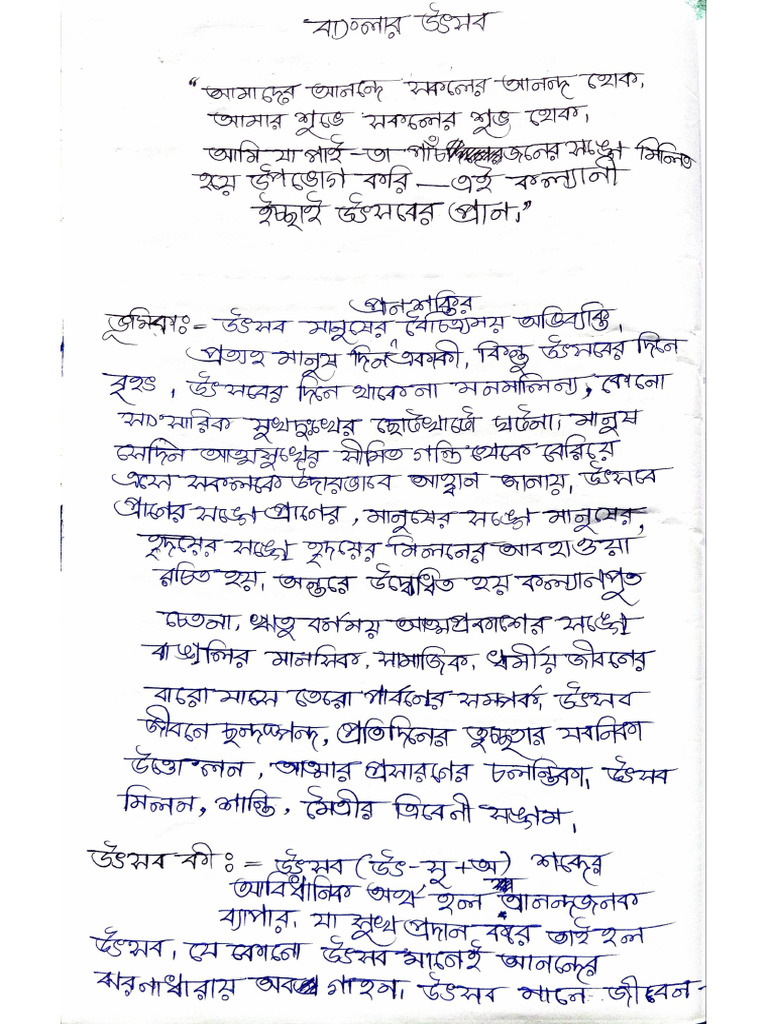 বাংলার উৎসব
"আমাদের আনন্দে সকলের আনন্দ হোক,
আমার শুভে সকলের শুভ হোক,
আমি যা পাই-তা পাঁচজনের সঙ্গে মিলিত
হয় উপভোগ করি —এই কল্যানী
ইচ্ছাই উৎসবের প্রান।"
প্রানশক্তির
ভূমিকাঃ= উৎসব মানুষের বৈচিত্র্যময় অভিব্যক্তি,
প্রত্যহ মানুষ দিন একাকী, কিন্তু উৎসবের দিনে
বৃহৎ, উৎসবের দিনে থাকেনা মনমালিন্য, কোনো
সাংসারিক সুখদুঃখের ছোটখাটো ঘটনা। মানুষ
সেদিন আত্মসুখের সীমিত গন্ডি থেকে বেরিয়ে
এসে সকলকে উদারভাবে আহ্বান জানায়, উৎসবে
প্রানের সঙ্গে প্রানের, মানুষের সঙ্গে মানুষের,
হৃদয়ের সঙ্গে হৃদয়ের মিলনের আবহাওয়া
রচিত হয়, অন্তরে উদ্বোধিত হয় কল্যানপুত
চেতনা, ঋতু বর্নময় আত্মপ্রকাশের সঙ্গে
বাঙালির মানসিক, সামাজিক, ধর্মীয় জীবনের
বারো মাসে তেরো পার্বনের সম্পর্ক, উৎসব
জীবনে ছন্দস্পন্দ, প্রতিদিনের তুচ্ছতার যবনিকা
উত্তোলন, আত্মার প্রসারণের চলন্তিকা, উৎসব
মিলন, শান্তি, মৈত্রীর ত্রিবেনী সঙ্গম,
উৎসব কীঃ= উৎসব (উৎ-সু+অ) শব্দের
আবিধানিক অর্থ হল আনন্দজনক
ব্যাপার, যা সুখ প্রদান করে তাই হল
উৎসব, যে কোনো উৎসব মানেই আনন্দের
ঝরনাধারায় অবগাহন, উৎসব মানে জীবন-